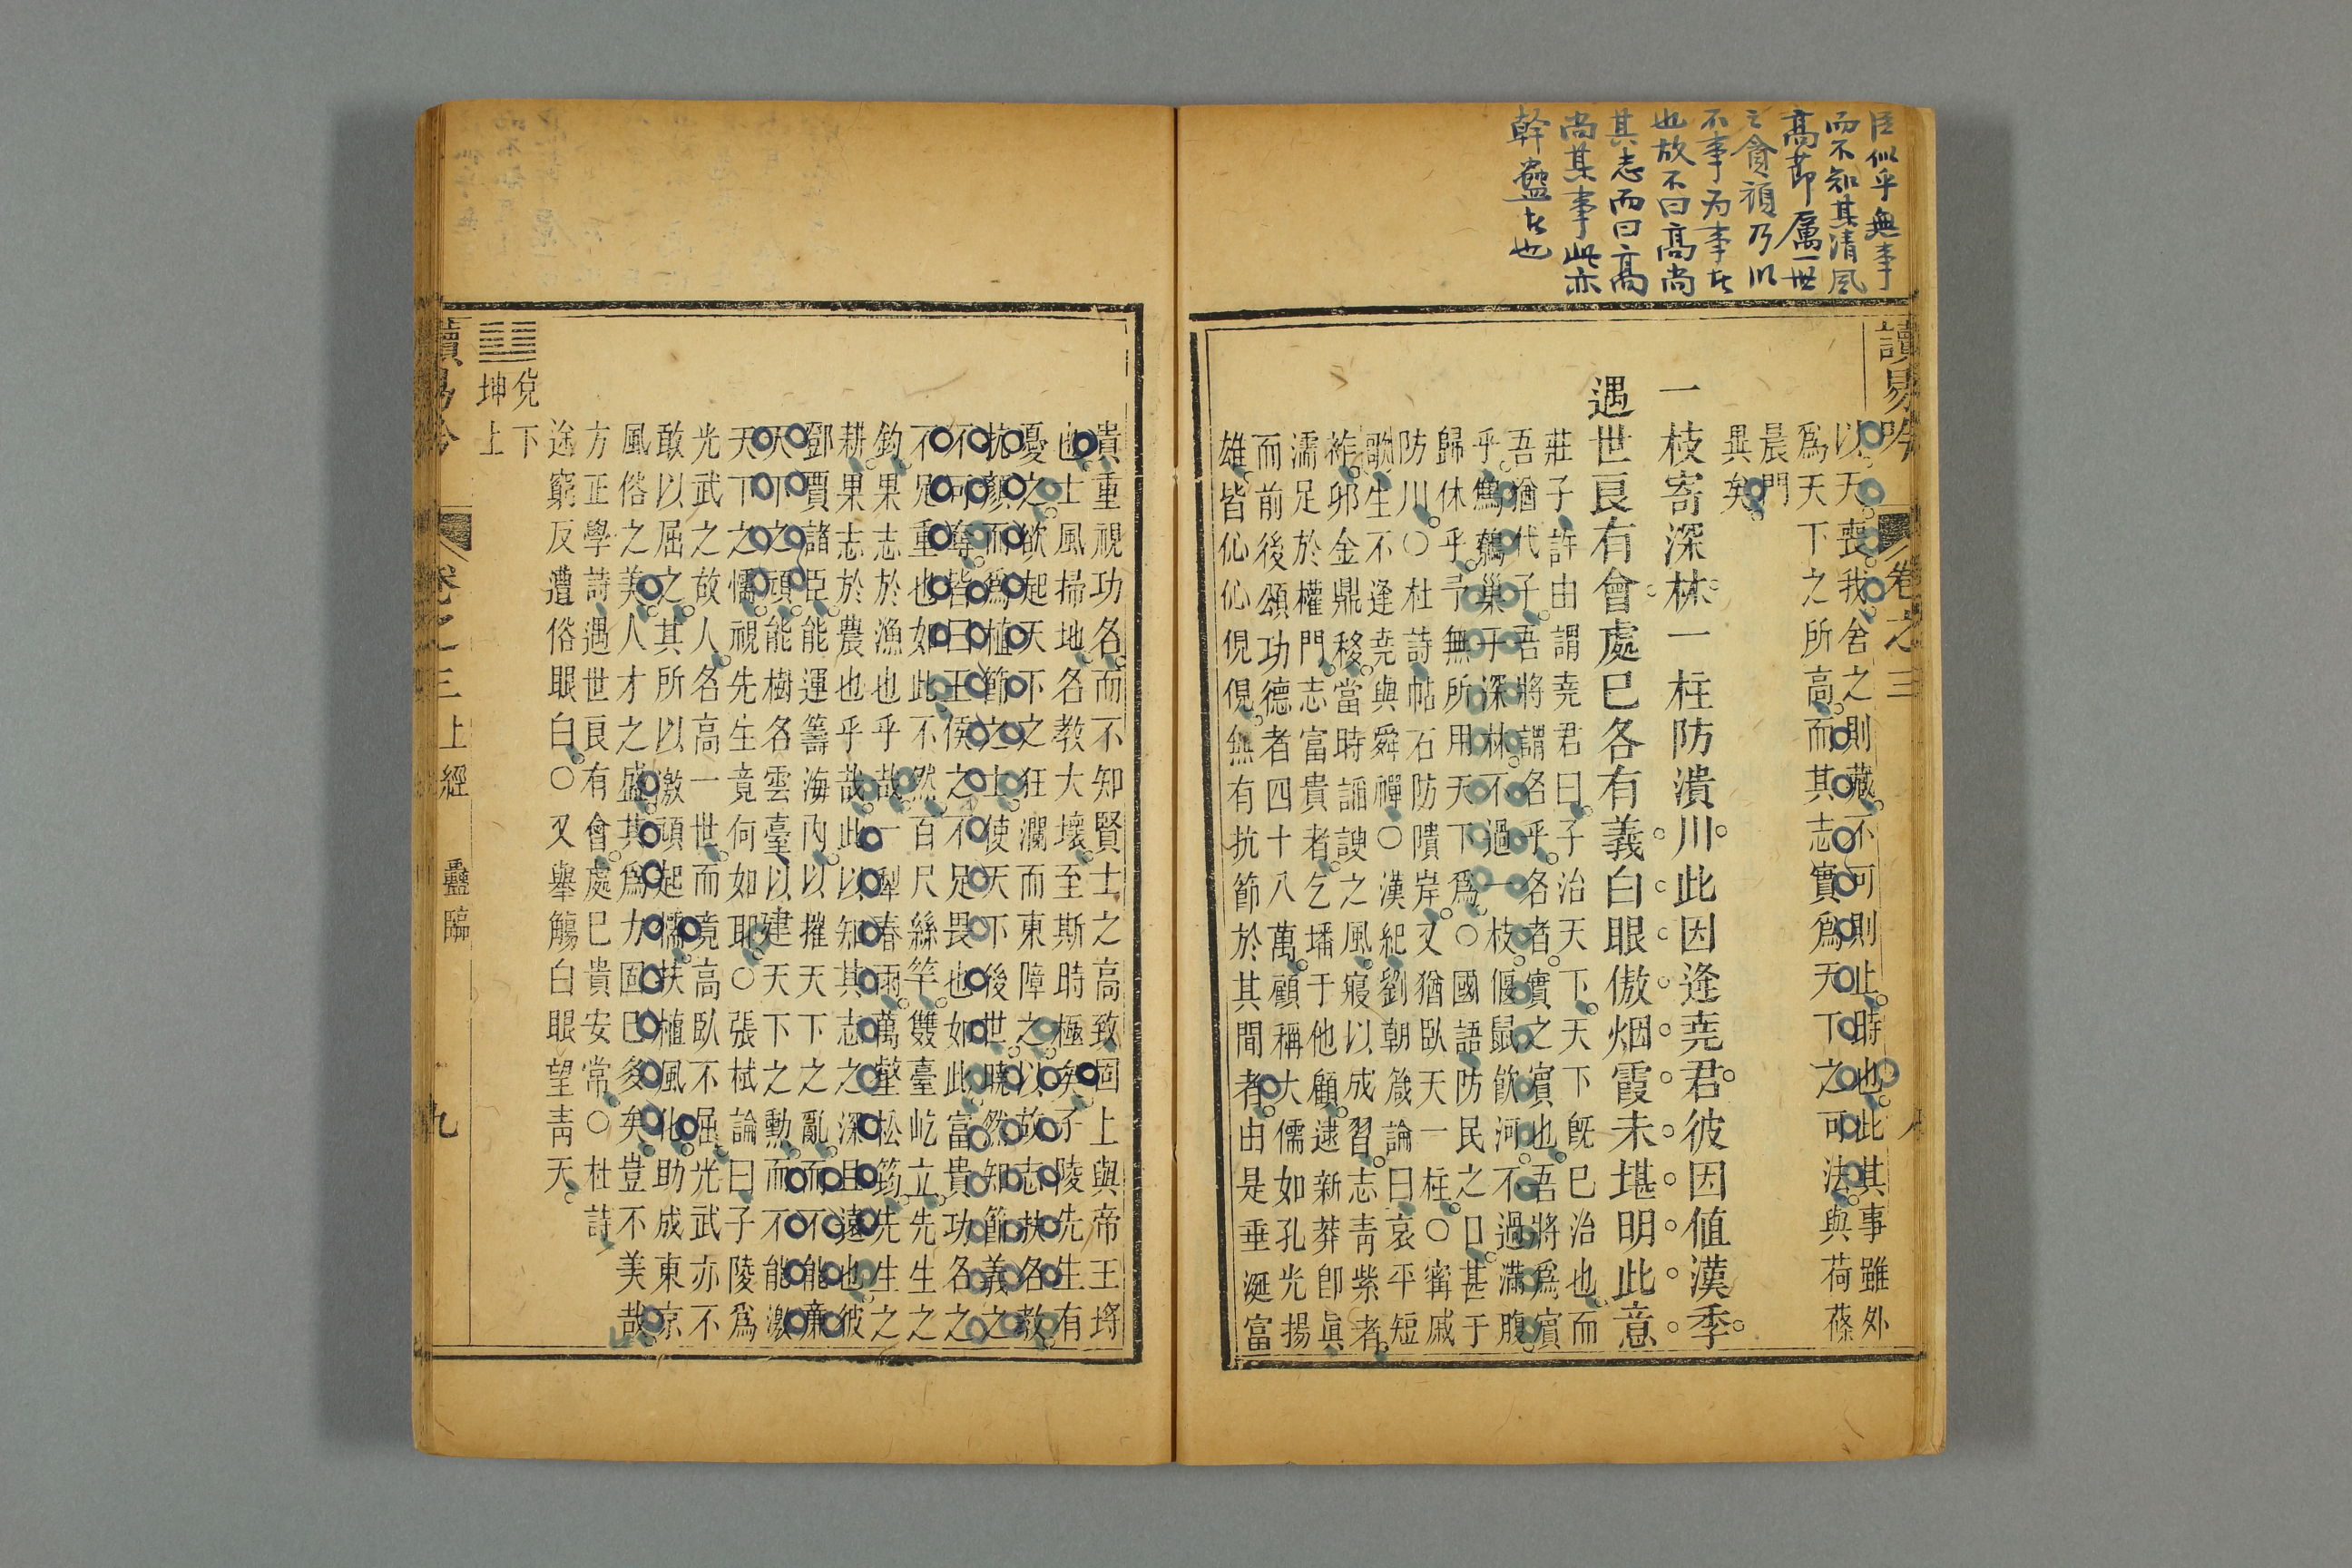 臣似乎無事
而不知其清風
高節厲一世
之貪頑乃以
不事为事者
也故不曰高尚
其志而曰高
尚其事此亦
幹蠱者也
讀易吟
卷之三
以天喪我舍之則藏不可則止時也此其事雖外
爲天下之所高而其志實爲天下之可法與荷蓧
晨門
異矣
一枝寄深林一柱防潰川此因逢堯君彼因値漢季
遇世良有會處巳各有義白眼傲烟霞未堪明此意
莊子許由謂堯君曰子治天下天下旣巳治也而
吾猶代子吾將謂名乎名者實之賓也吾將爲賓
乎鷦鷯巢于深林不過一枝偃鼠飮河不過滿腹
歸休乎予無所用天下爲〇國語防民之口甚于
防川〇杜詩帖石防隤岸又猶臥天一柱〇甯戚
歌生不逢堯與舜禪〇漢紀劉朝箴論曰哀平短
祚卯金鼎移當時諂諛之風寖以成習志青紫者
濡足於權門志富貴者乞墦于他顧逮新莽卽眞
而前後頌功德者四十八萬顧稱大儒如孔光揚
雄皆伈伈俔俔無有抗節於其間者由是垂涎富
貴重視功名而不知賢士之高致固上與帝王埒
也士風掃地名教大壞至斯時極矣子陵先生有
憂之欲起天下之狂瀾而東障之以故志扶名敎
抗顏而爲植節之士使天下後世曉然知節義之
不可辱皆曰王侯之不足畏也如此富貴功名之
不足重也如此不然百尺絲竿雙臺屹立先生之
釣果志於漁也乎哉一犁春雨萬壑松筠先生之
耕果志於農也乎哉此以知其志之深且遠也彼
鄧賈諸臣能運籌海內以摧天下之亂而不能廉
天下之頑能樹名雲臺以建天下之勳而不能激
天下之懦視先生竟何如耶〇張栻論曰子陵爲
光武之故人名高一世而竟高臥不屈光武亦不
敢以屈之其所以激頑起懦扶植風化助成東京
風俗之美人才之盛其爲力固巳多矣豈不美哉
方正學詩遇世良有會處巳貴安常〇杜詩
途窮反遭俗眼白〇又舉觴白眼望青天
兌下
坤上
讀易吟
卷之三
上經
蠱臨
九